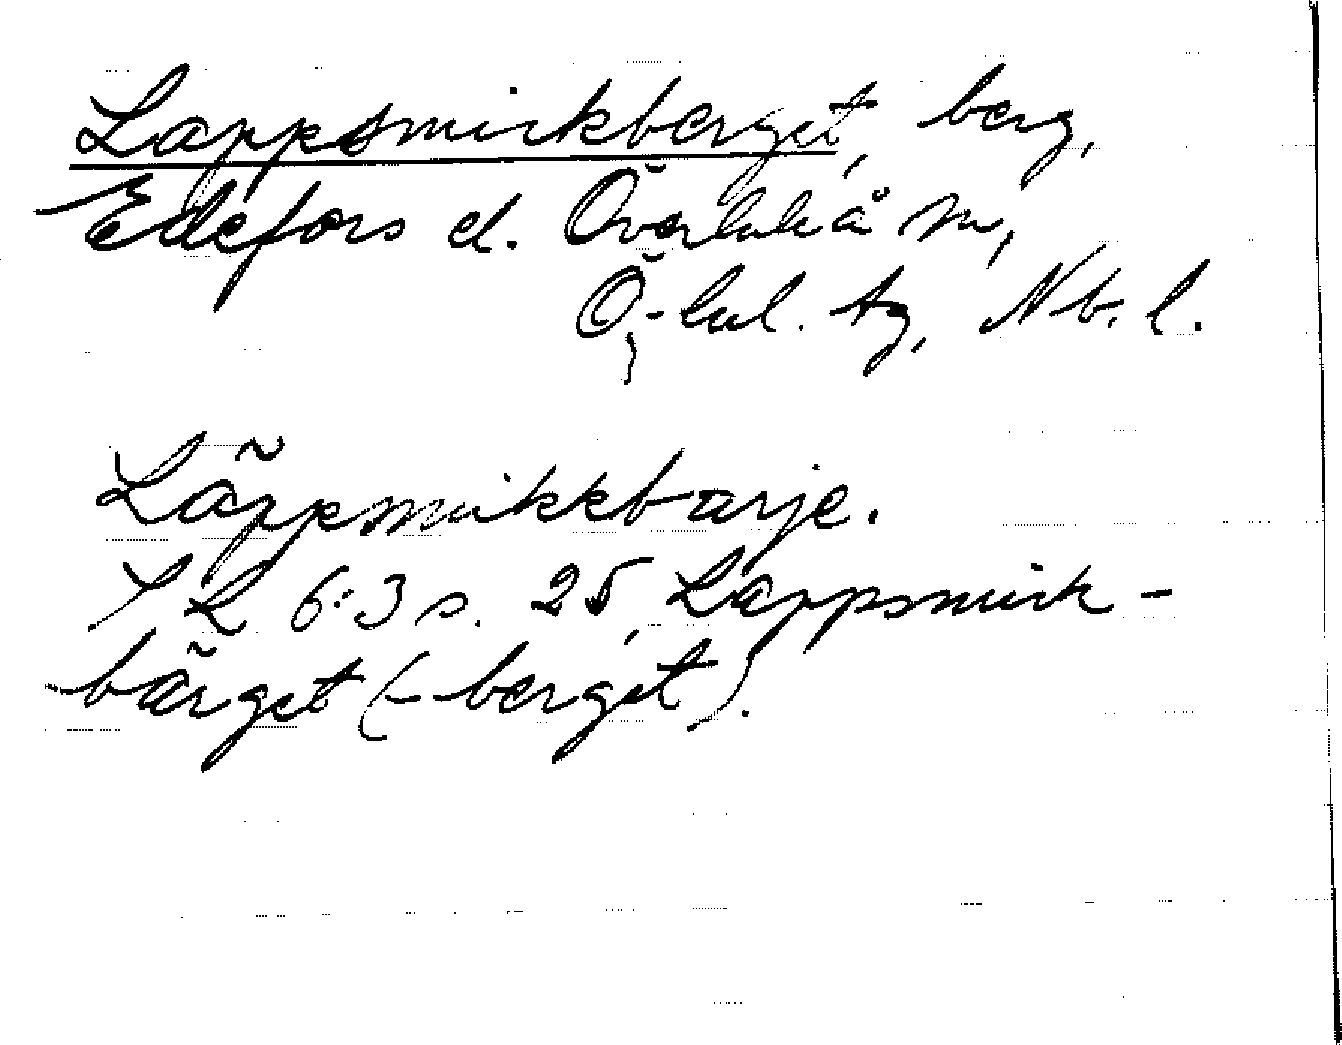 Lappsmirkberget, berg,
Edefors d. Överluleå sn,
Ö.-lul. tg, Nb. l.
Lãppsmikkbarje.
SL 6:3 s. 25, Lappsmirk-
bärget (-berget).